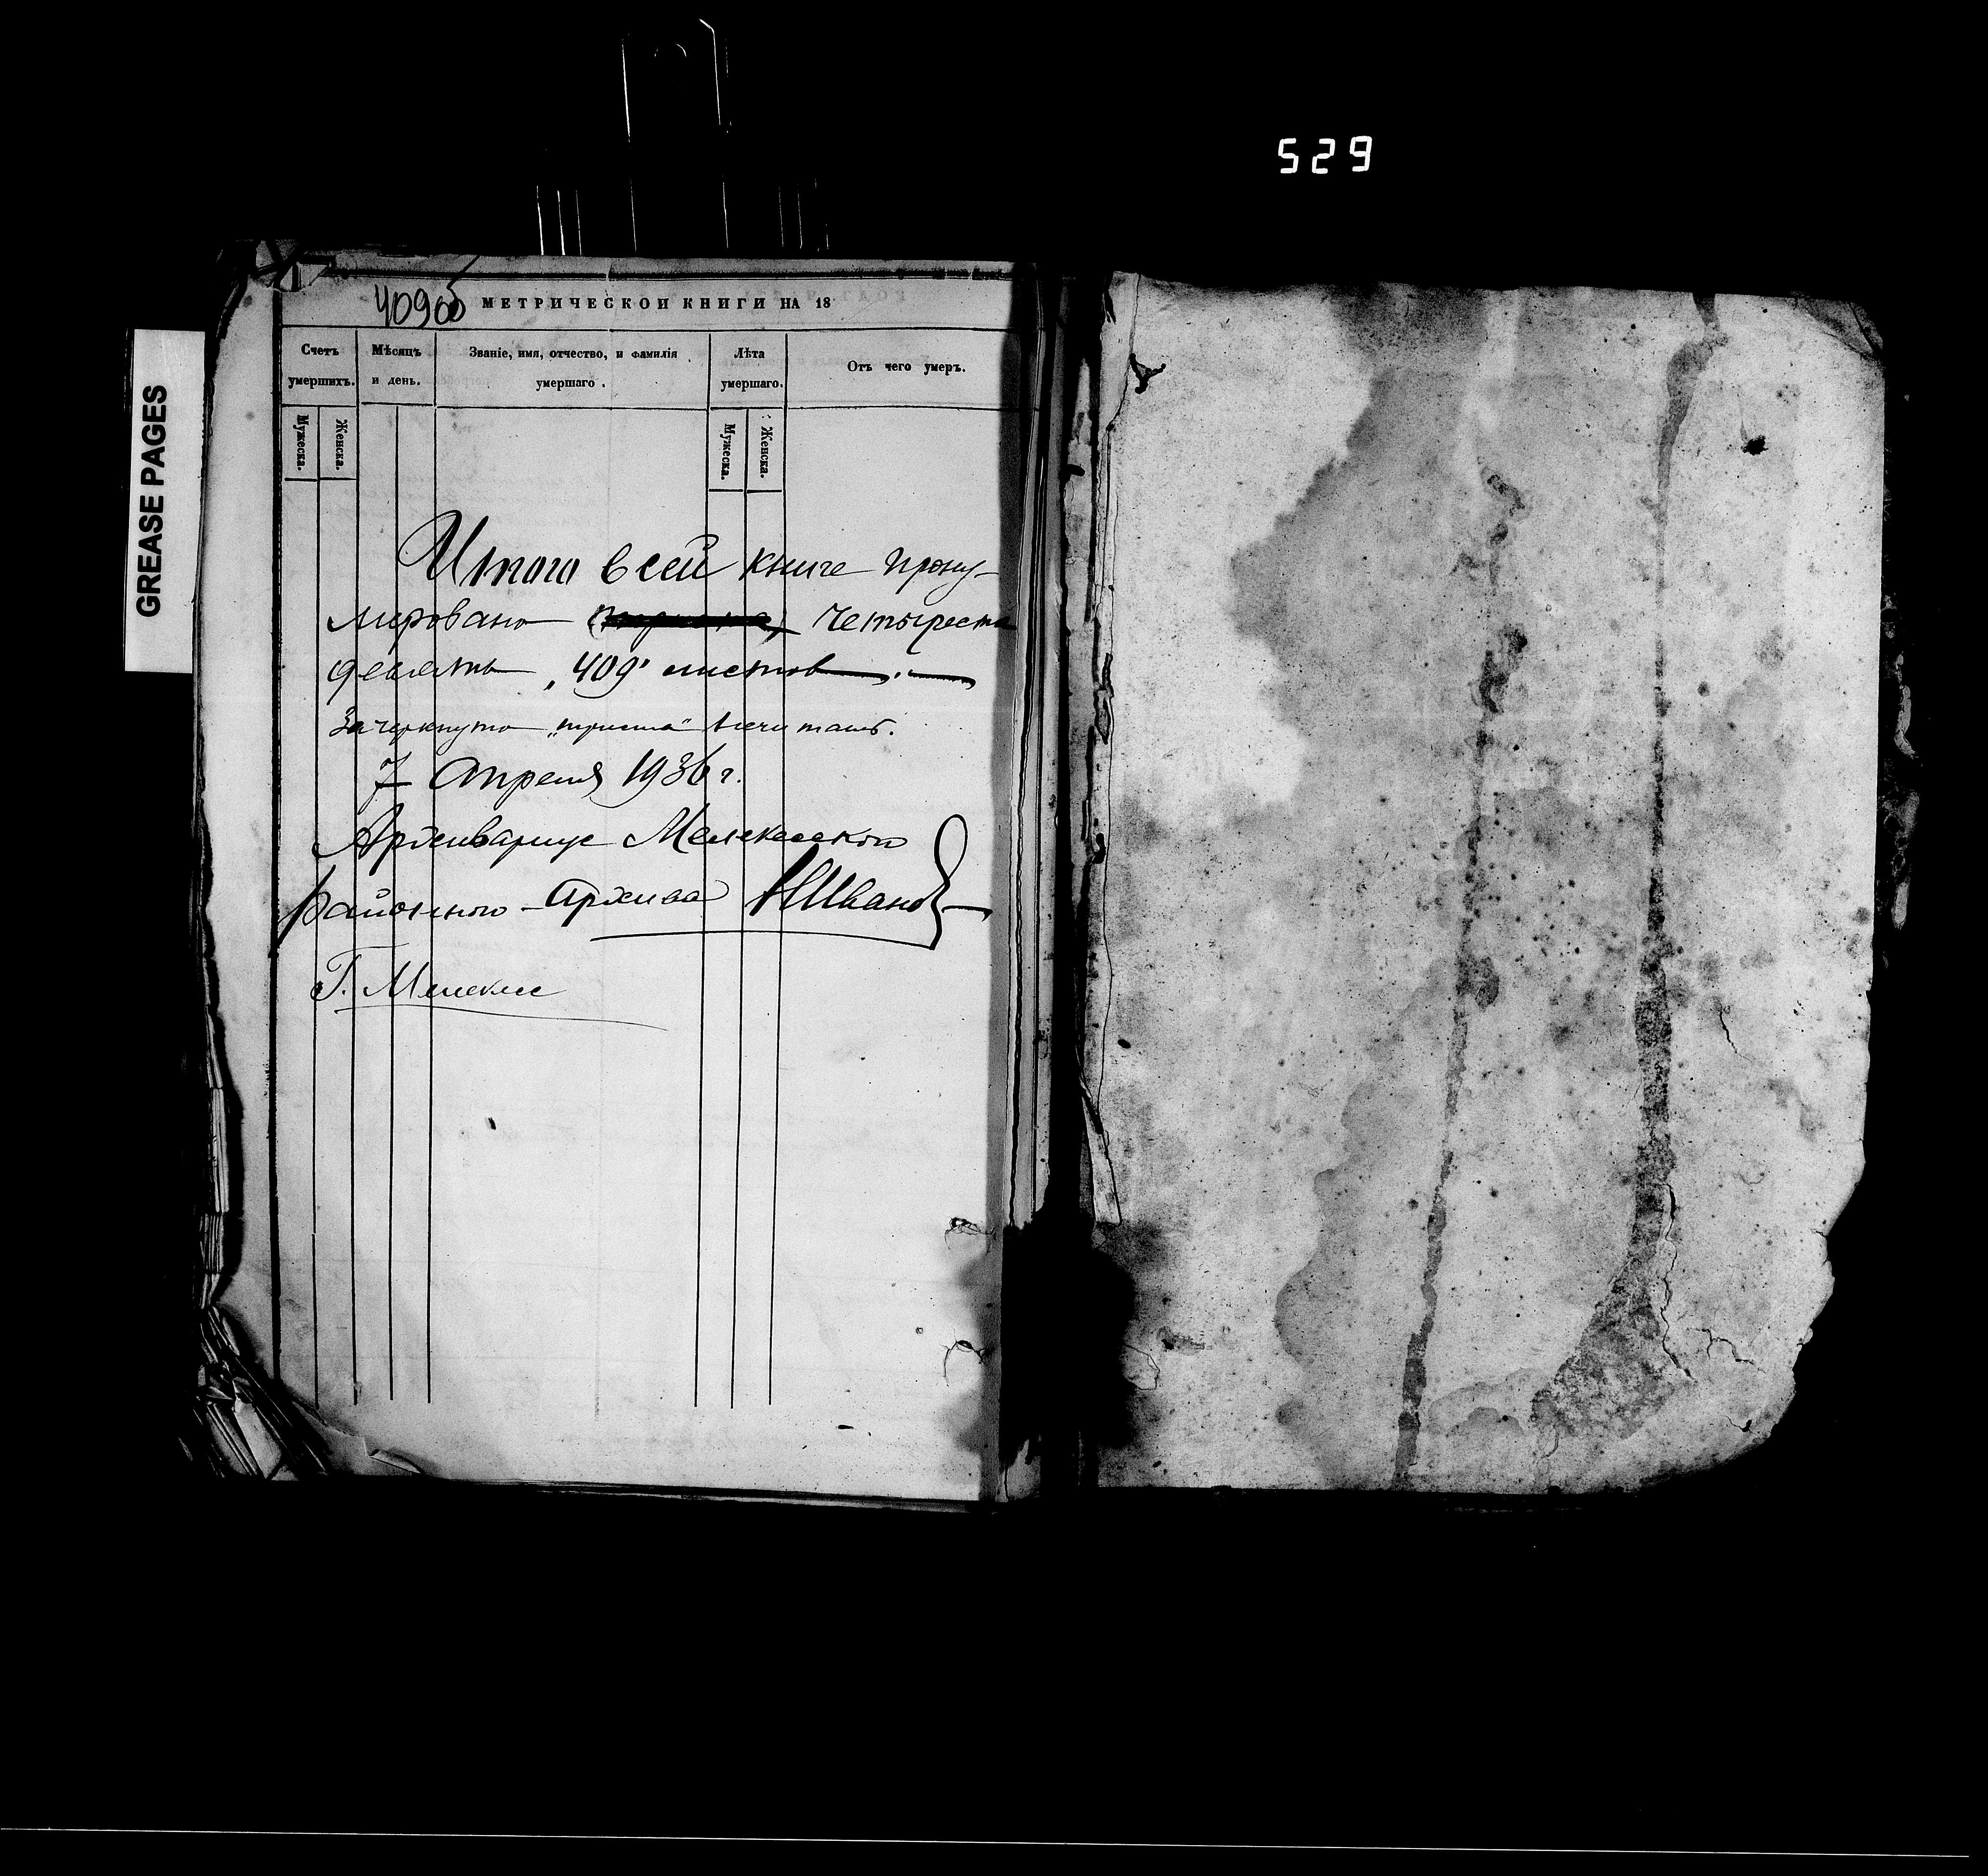 529
GREASE PAGES
409об
МЕТРИЧЕСКОЙ КНИГИ НА 18
Счетъ умершихъ.
Мѣсяцъ и день.
Званіе, имя, отчество, и фамилія умершаго.
Лѣта умершаго.
Отъ чего умеръ.
Мужеска.
Женска.
Мужеска.
Женска.
Итого в сей книге прону-
мировано триста четыреста
девять „409" листов
Зачеркнуто „триста"
7 Апреля 1936 г.
Архивариус Мелекесского
районного архива Иванов
Г. Мелекесс